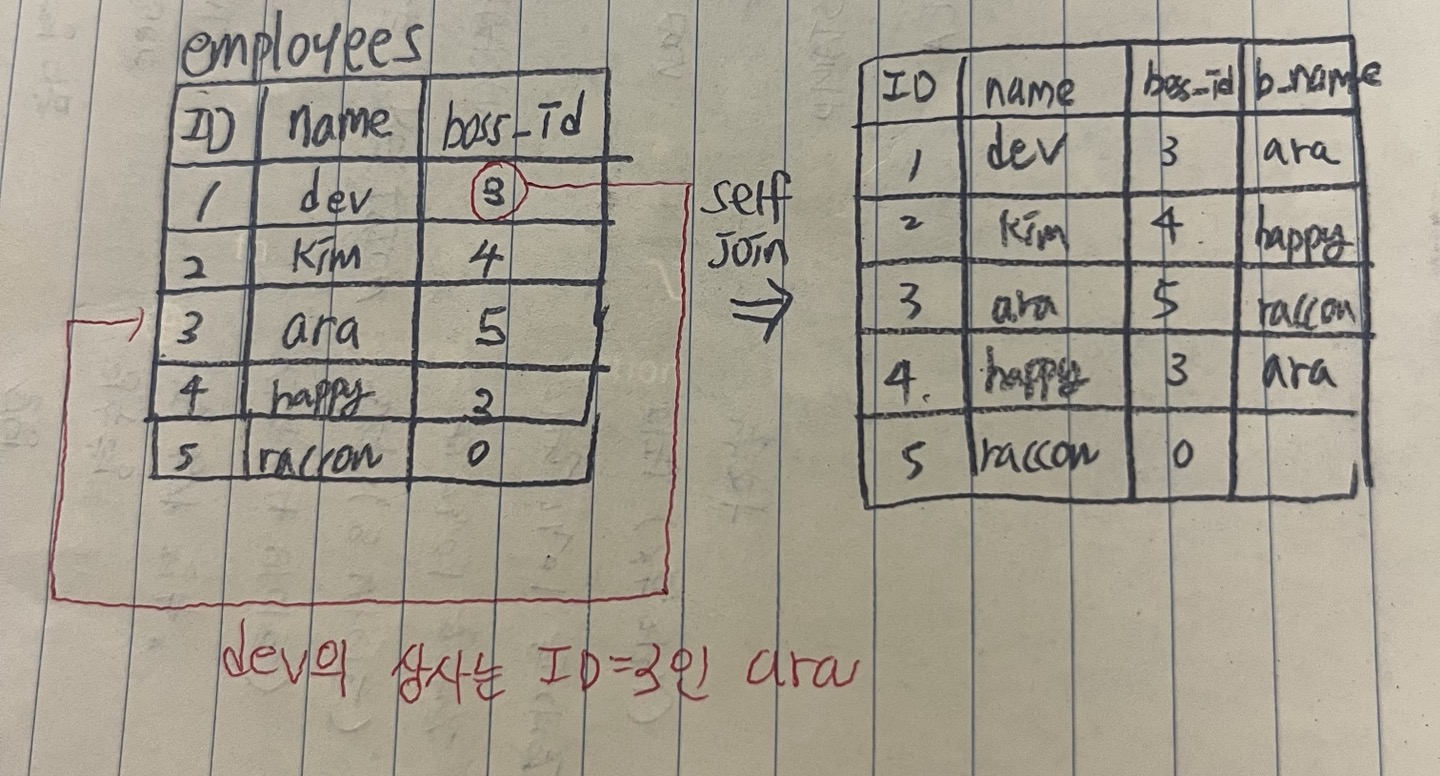 employees
ID name boss_id
1 dev 3
2 Kim 4
3 ara 5
4 happy 2
5 raccon 0
self
join
⇒
ID name boss_id b_name
1 dev 3 ara
2 Kim 4 happy
3 ara 5 raccon
4. happy 3 ara
5 raccon 0
dev의 상사는 ID=3인 ara